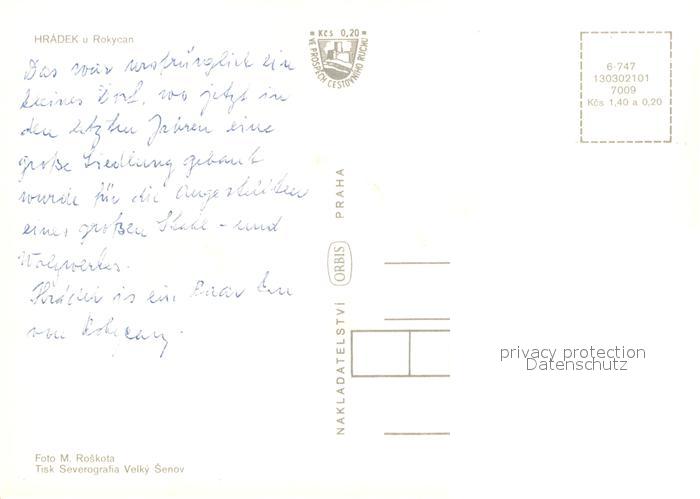 HRÁDEK u Rokycan
Das war ursprünglich ein
kleines Dorf, wo jetzt in
den letzten Jahren eine
große Siedlung gebaut
wurde für die Angestellten
eines großen Stahl - und
Walzwerkes.
Hrádek is ein Paar km
von Rokycany.
Kčs 0,20
VE PROSPĚCH CESTOVNÍHO RUCHU
6-747
130302101
7009
Kčs 1,40 a 0,20
NAKLADATELSTVÍ ORBIS PRAHA
privacy protection
Datenschutz
Foto M. Roškota
Tisk Severografia Velký Šenov